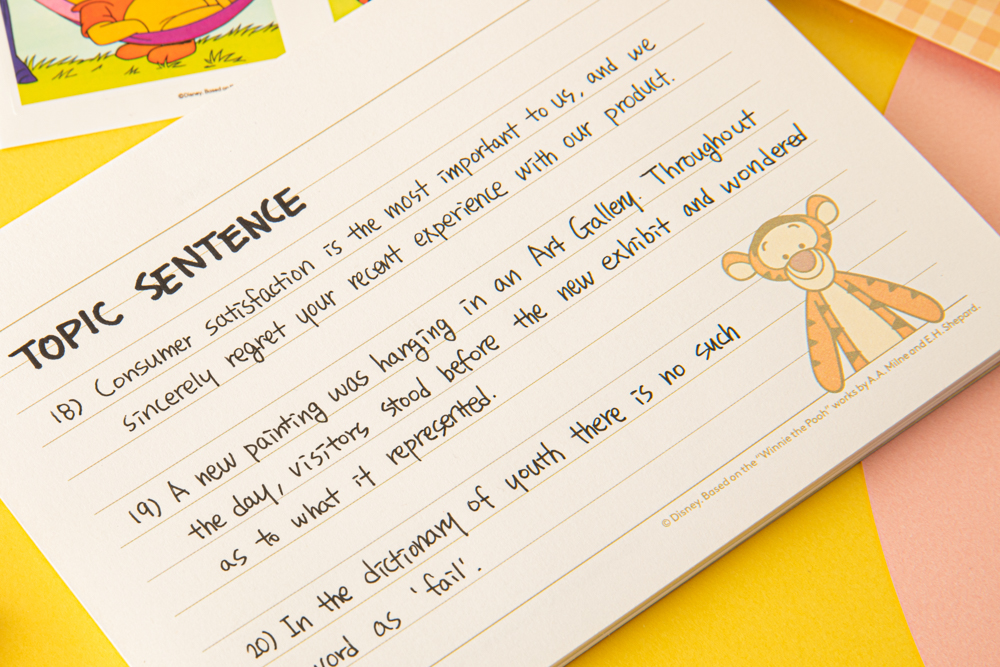 ©Disney. Based on
TOPIC SENTENCE
18) Consumer satisfaction is the most important to us, and we
sincerely regret your recent experience with our product.
19) A new painting was hanging in an Art Gallery Throughout
the day, visitors stood before the new exhibit and wondered
as to what it represented.
20) In the dictionary of youth there is no such
word as 'fail'.
© Disney. Based on the "Winnie the Pooh" works by A.A. Milne and E.H. Shepard.